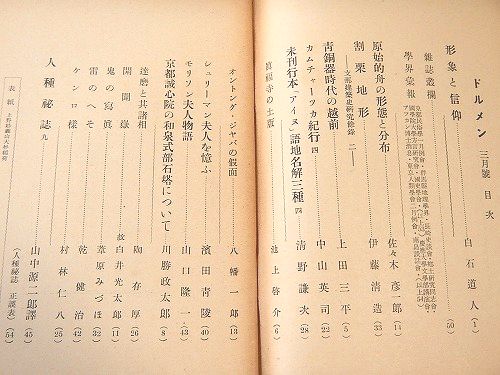 ドルメン 三月號 目次
形象と信仰 白石道人 (1)
雜誌叢欄 (50)
學界彙報
原始的舟の形態と分布 佐々木彦一郎 (14)
割栗地形 伊藤清造 (33)
―支那建築史研究餘錄 二―
青銅器時代の越前 上田三平 (5)
カムチャーツカ紀行 四 中山英司 (22)
未刊行本「アイヌ」語地名解三種 四 清野謙次 (28)
眞福寺の土壺 池上啓介 (6)
オントング・ジャバの假面 八幡一郎 (13)
シュリーマン夫人を憶ふ 濱田青陵 (40)
モリソン夫人物語 山口隆一 (43)
京都誠心院の和泉式部石塔について 川勝政太郎 (8)
達磨と其諸相 陶存厚 (26)
開闢 故白井光太郎 (11)
鬼の寫眞 葦原みづほ (32)
雷のへそ 乾健治 (42)
ケンロ樣 村林仁八 (25)
人種秘誌 九 山中源二郎譯 (45)
(人種秘誌 正誤表) (54)
表紙